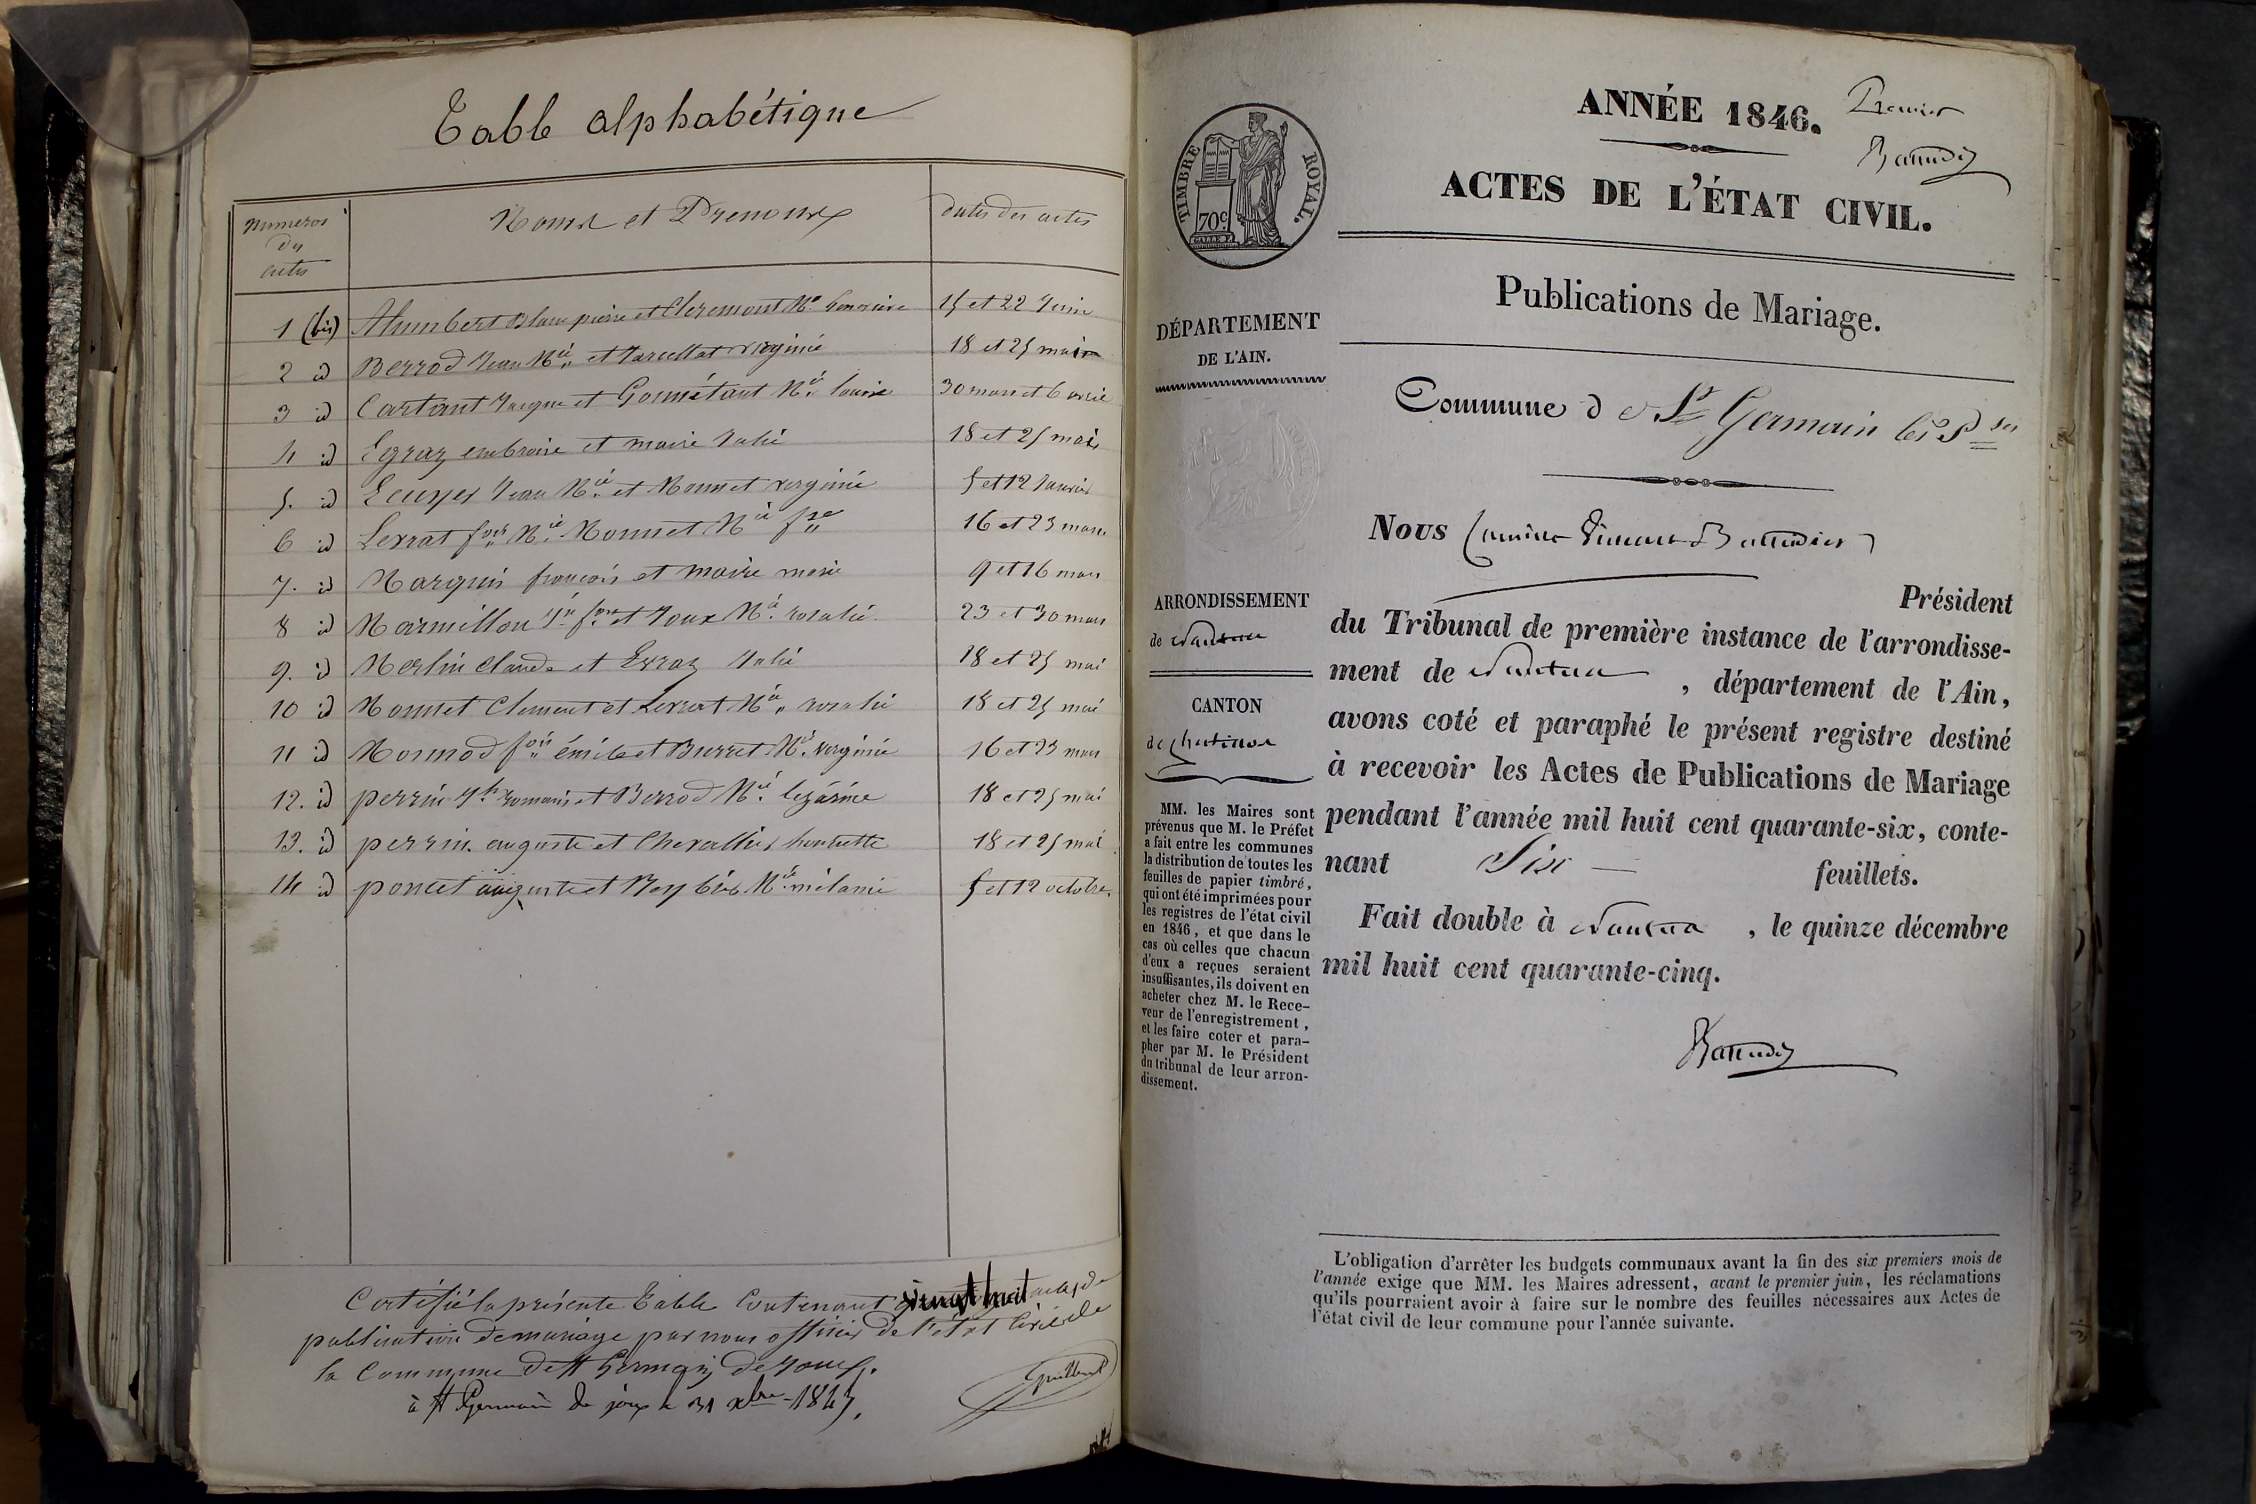 Table alphabétique
Numeros
des
actes
Noms et Prenoms
dates des actes
1 (bis) Humbert Blanc pierre et Cleremont Me 15 et 22 Juin
2 id Berrod Jean Mie et virginie 18 et 25 mai
3 id Cartant Jacque et Gonnétant Mie louise 30 mars et 6 avril
4 id Egraz embroise et maire Julie 18 et 25 mai
5. id Ecuyer Jean Mie et Monnet virginie 5 et 12 Janvier
6 id Levrat fois Mie Monnet Mie fse 16 et 23 mars
7. id Marquis françois et maire marie 9 et 16 mars
8 id Marmillon Jh fois et Joux Mie rosalie 23 et 30 mars
9. id Merlin Claude et Evraz Julie 18 et 25 mai
10 id Monnet Clement et Levrat Mie rosalie 18 et 25 mai
11 id Monnod fois émile et Burret Mie virginie 16 et 23 mars
12. id perrin Jh romain et Berrod Mie lezarine 18 et 25 mai
13. id perrin auguste et Chevallier henriette 18 et 25 mai
14 id poncet auguste et Rey Mie mélanie 5 et 12 octobre.
Certifié la présente Table Contenant actes de
publication de mariage par nous officier de l'état Civil de
la Commune de St Germain de Joux.
à St Germain de joux le 31 xbre 1845.
Guillent
ANNÉE 1846.
Premier
Baudier
ACTES DE L'ÉTAT CIVIL.
TIMBRE ROYAL.
70c
Publications de Mariage.
DÉPARTEMENT
DE L'AIN.
Commune de St Germain
Nous
Président
du Tribunal de première instance de l'arrondisse-
ment de Nantua , département de l'Ain,
avons coté et paraphé le présent registre destiné
à recevoir les Actes de Publications de Mariage
pendant l'année mil huit cent quarante-six, conte-
nant Six feuillets.
Fait double à Nantua , le quinze décembre
mil huit cent quarante-cinq.
ARRONDISSEMENT
de Nantua
CANTON
de Chatillon
MM. les Maires sont
prévenus que M. le Préfet
a fait entre les communes
la distribution de toutes les
feuilles de papier timbré,
qui ont été imprimées pour
les registres de l'état civil
en 1846, et que dans le
cas où celles que chacun
d'eux a reçues seraient
insuffisantes, ils doivent en
acheter chez M. le Rece-
veur de l'enregistrement,
et les faire coter et para-
pher par M. le Président
du tribunal de leur arron-
dissement.
L'obligation d'arrêter les budgets communaux avant la fin des six premiers mois de
l'année exige que MM. les Maires adressent, avant le premier juin, les réclamations
qu'ils pourraient avoir à faire sur le nombre des feuilles nécessaires aux Actes de
l'état civil de leur commune pour l'année suivante.